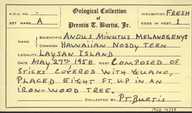 Oological Collection
of
Prentis T. Burtis, Jr.
SET A
FRESH
EGGS IN SET 1
SCIENTIFIC NAME ANOUS MINUTUS MELANOGENYS
COMMON NAME HAWAIIAN NODDY TERN
LOCALITY LAYSAN ISLAND
DATE MAY 27TH 1958 COMPOSED OF
STICKS COVERED WITH GUANO,
PLACED EIGHT FT. UP IN AN
IRON-WOOD TREE.
COLLECTED BY P.T. Burtis